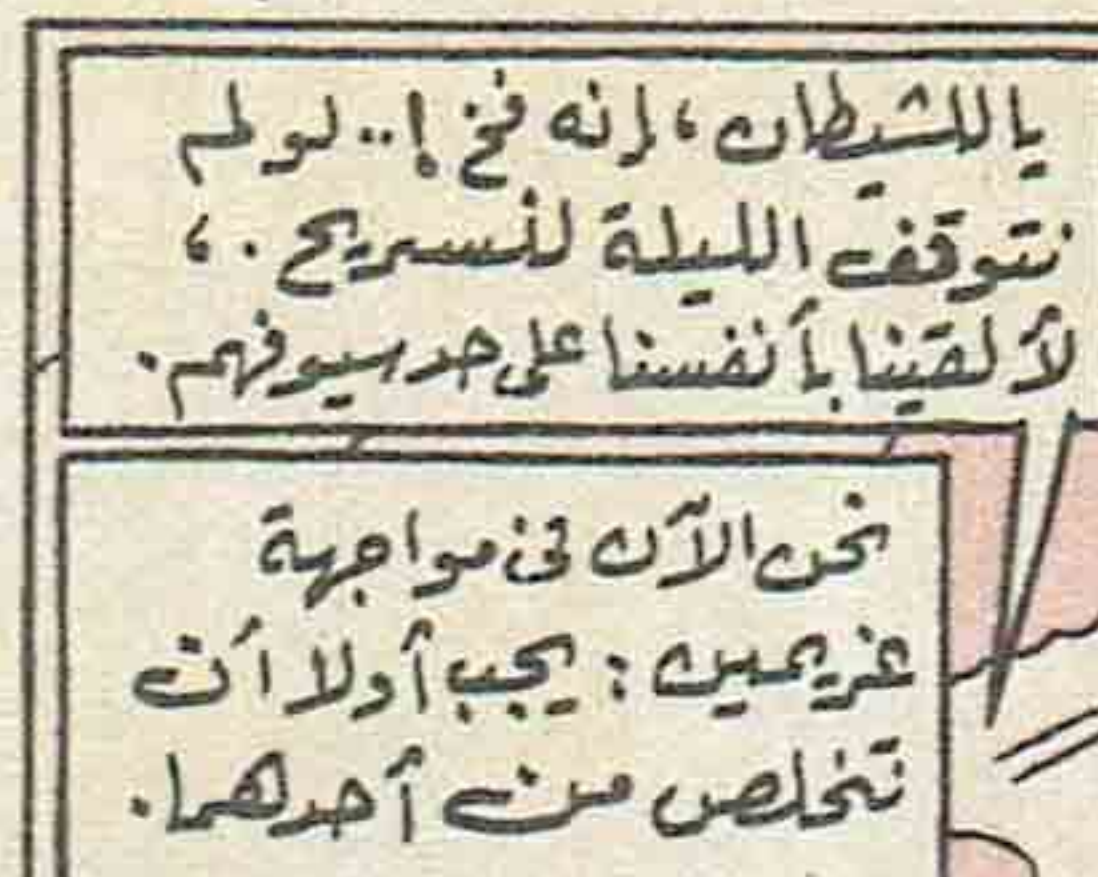 يا للشيطان، إنه فخ!.. لو لم
نتوقف الليلة لنستريح .،
لألقينا بأنفسنا على حد سيوفهم.
نحن الآن فى مواجهة
غريمين : يجب أولا أن
نتخلص من أحدهما.